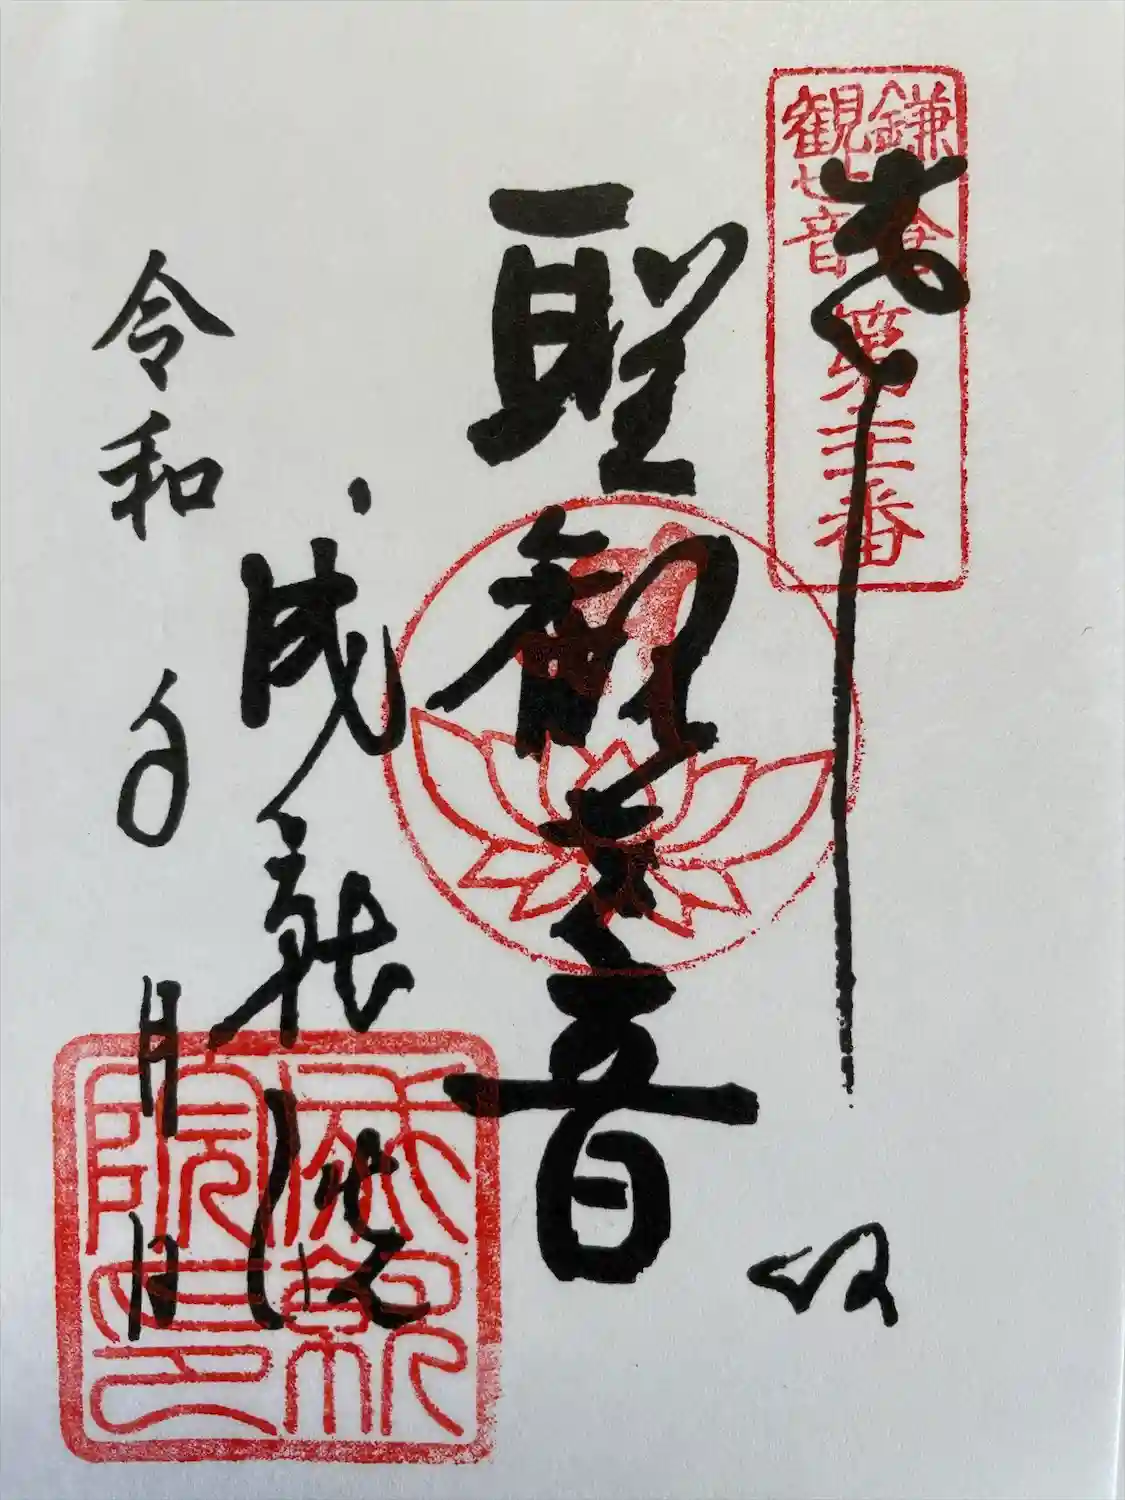 鎌倉
観世音
第廿一番
奉拝
聖観世音
成就院
令和 年 月 日
成就
院印